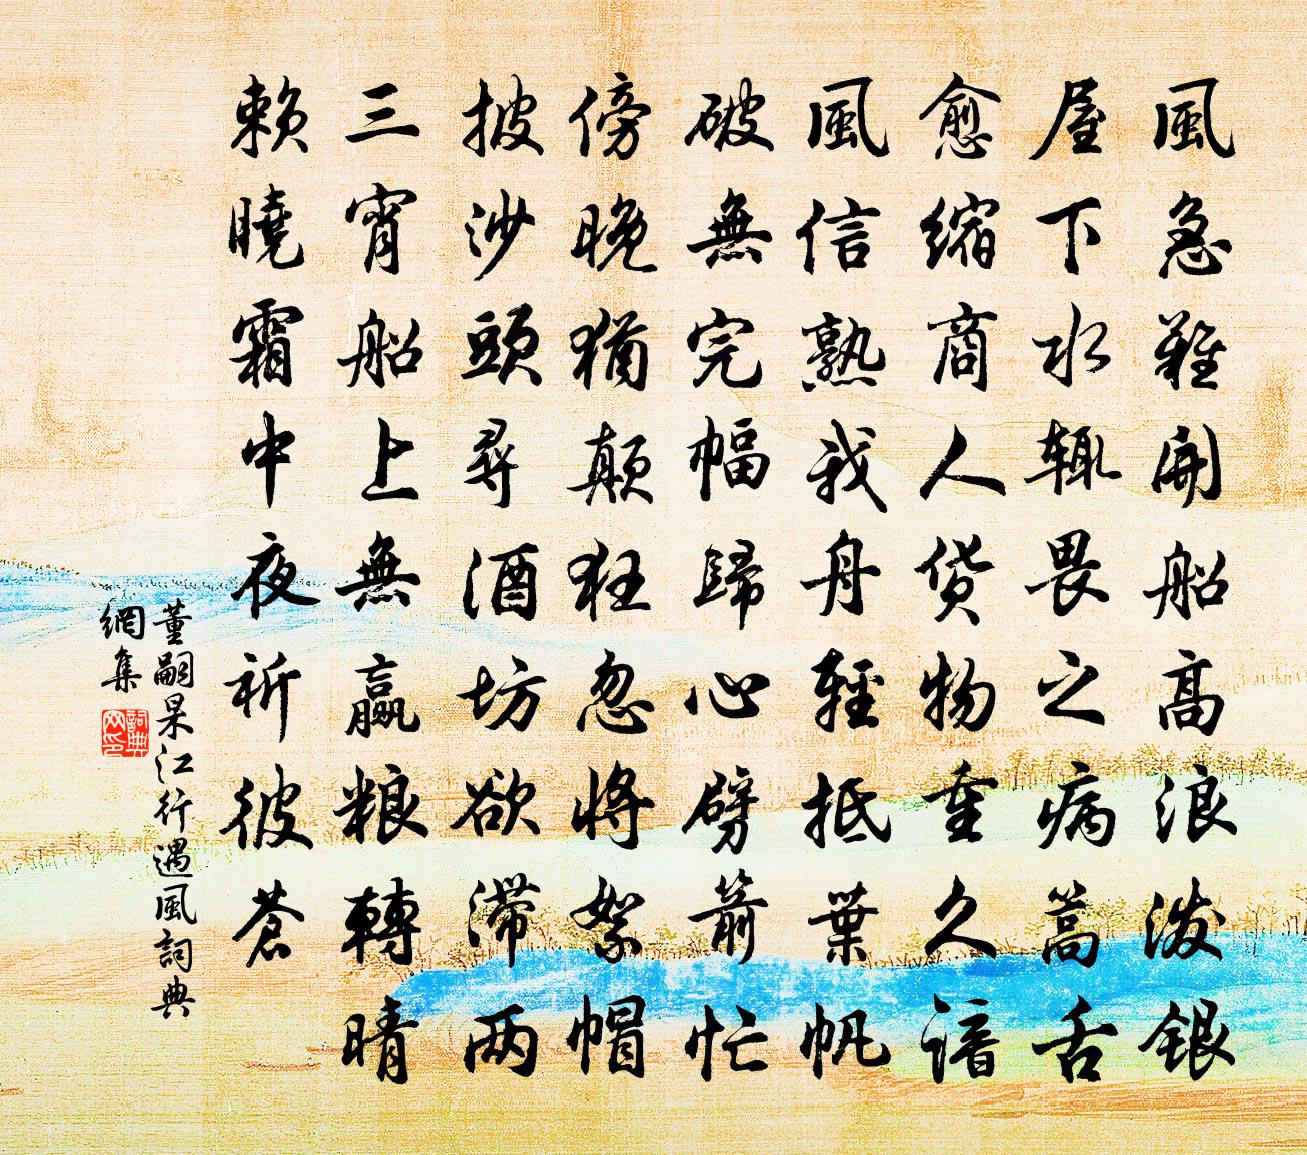 風急難開船高浪潑銀
屋下水輒畏之病蒿舌
愈縮商人貨物重久諳
風信熟我舟輕抵葉帆
破無完幅歸心劈箭忙
傍晚猶顛狂忽將絮帽
披沙頭尋酒坊欲滯两
三宵船上無贏粮轉晴
賴曉霜中夜祈彼蒼
董嗣杲江行遇風詞典
網集
詞典
网印